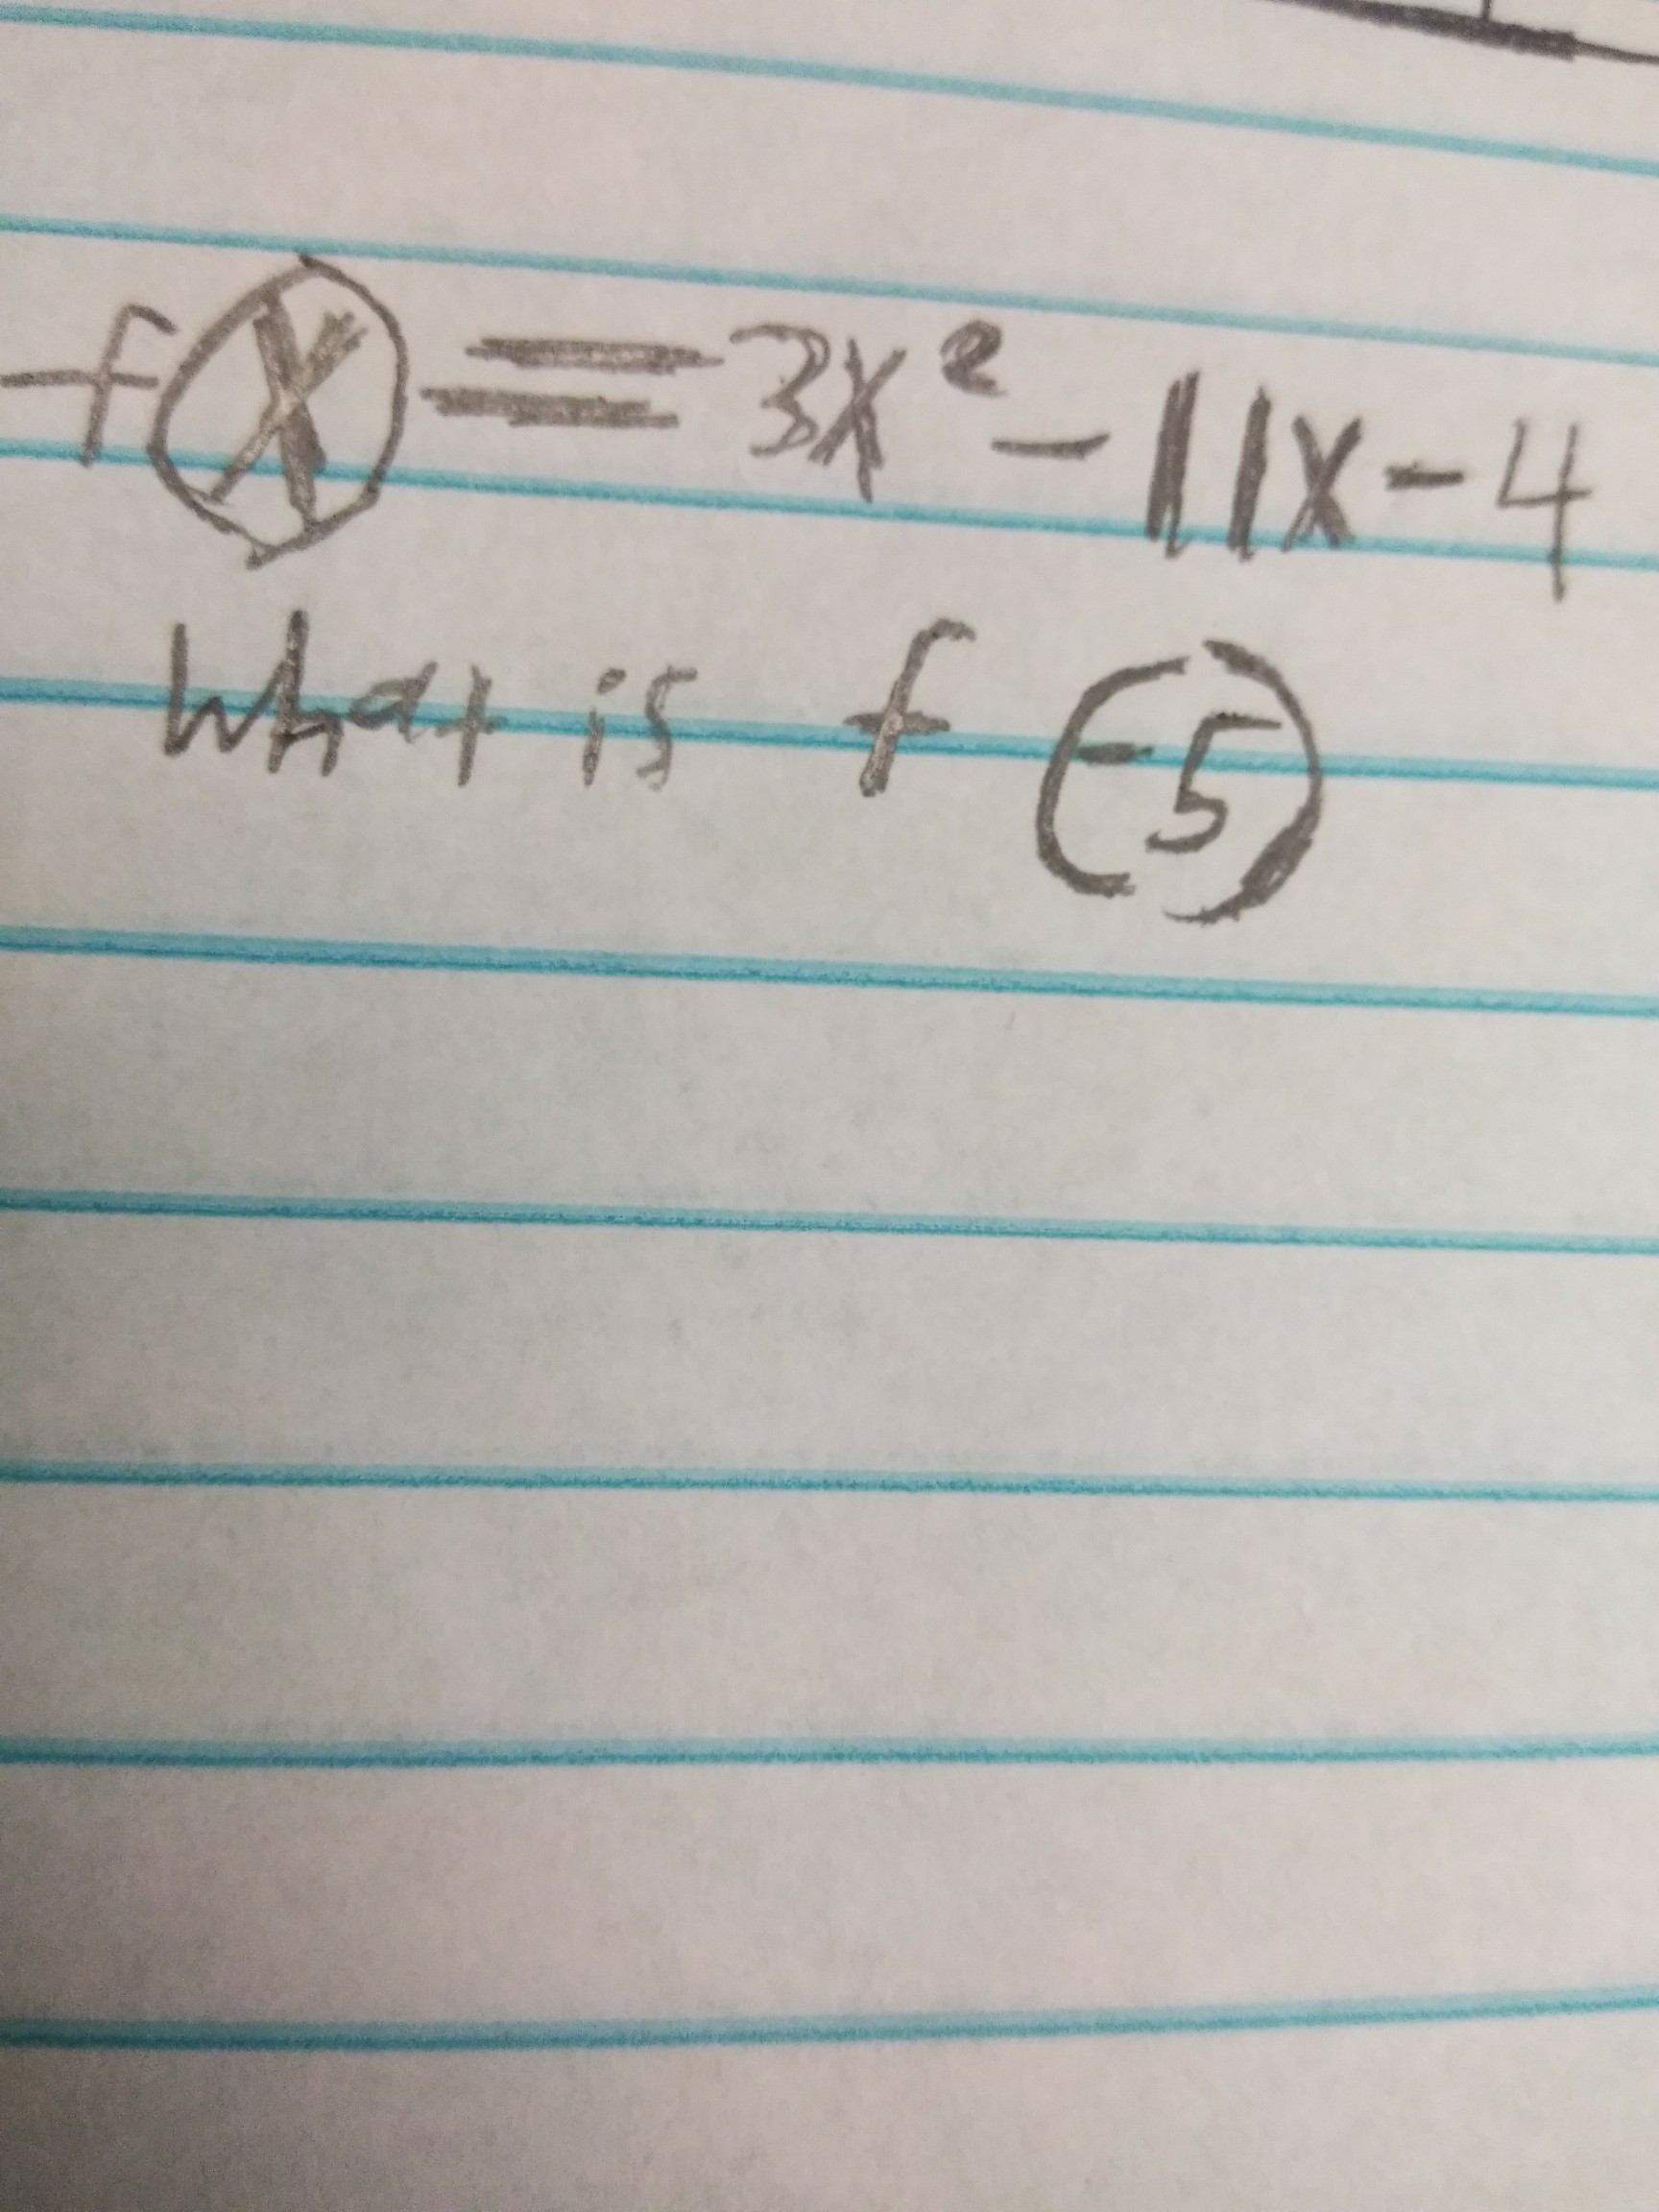 f(x) = 3x² - 11x - 4
What is f (-5)